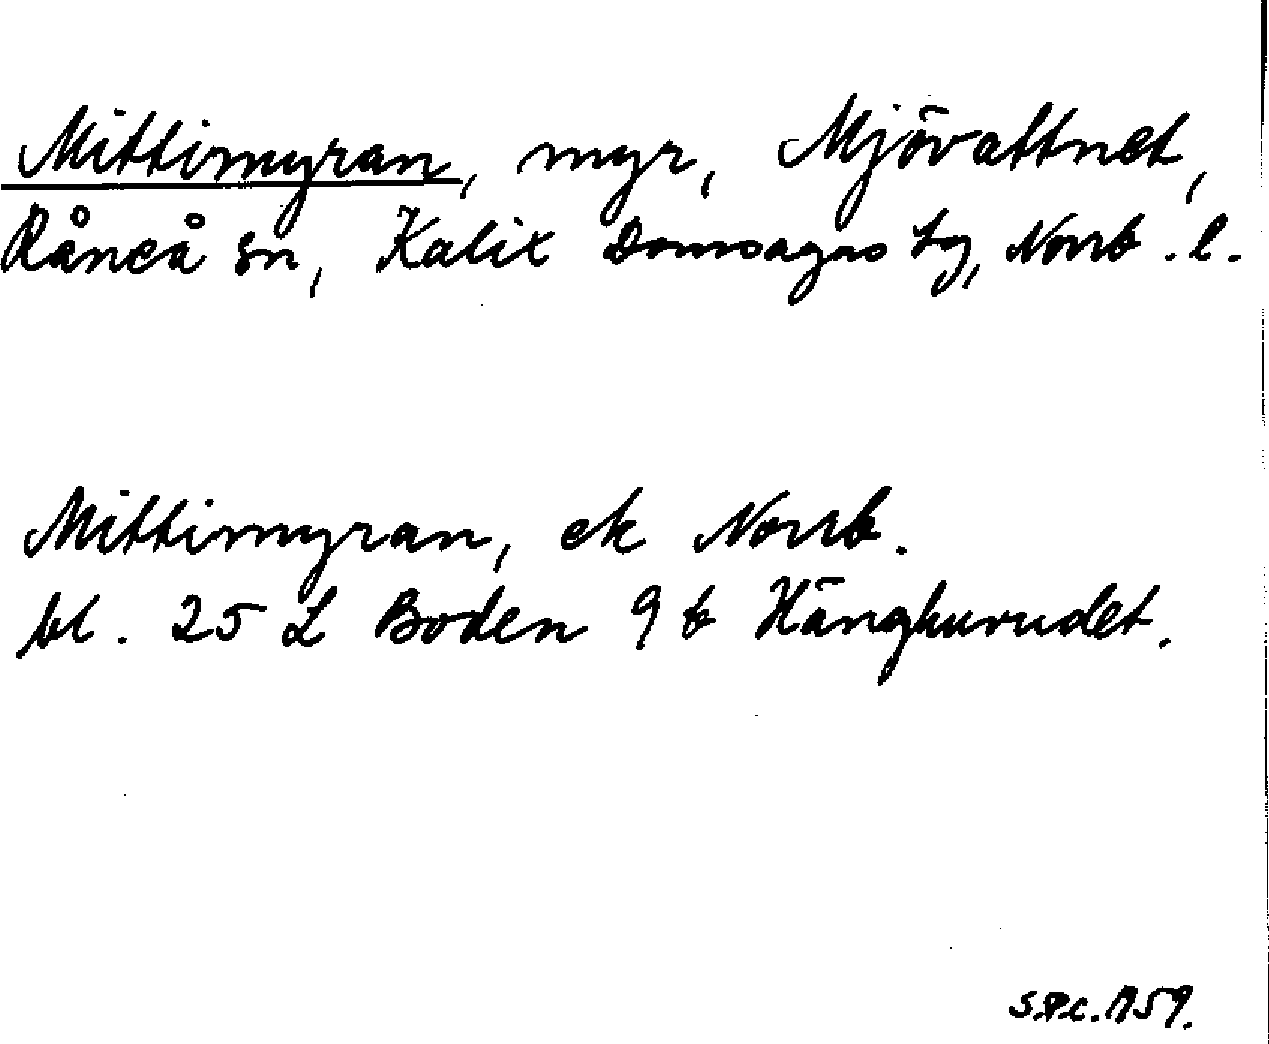 Mittimyran, myr, Mjövattnet,
Råneå sn, Kalix Domsagas tg, Norrb. l.
Mittimyran, ek Norrb.
bl. 25 L Boden 9 b Hänghuvudet.